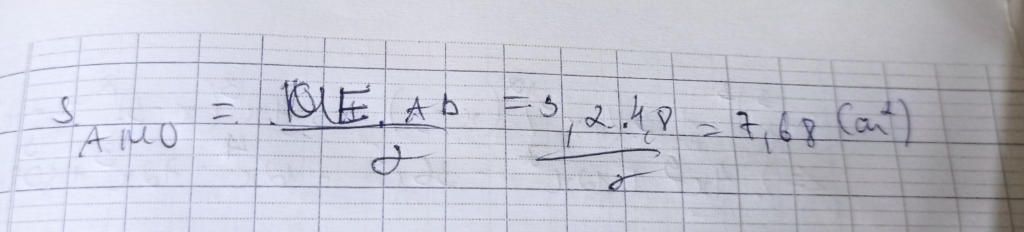 S AMO = ME . AD / 2 = 3,2.4,8 / 2 = 7,68 (cm²)